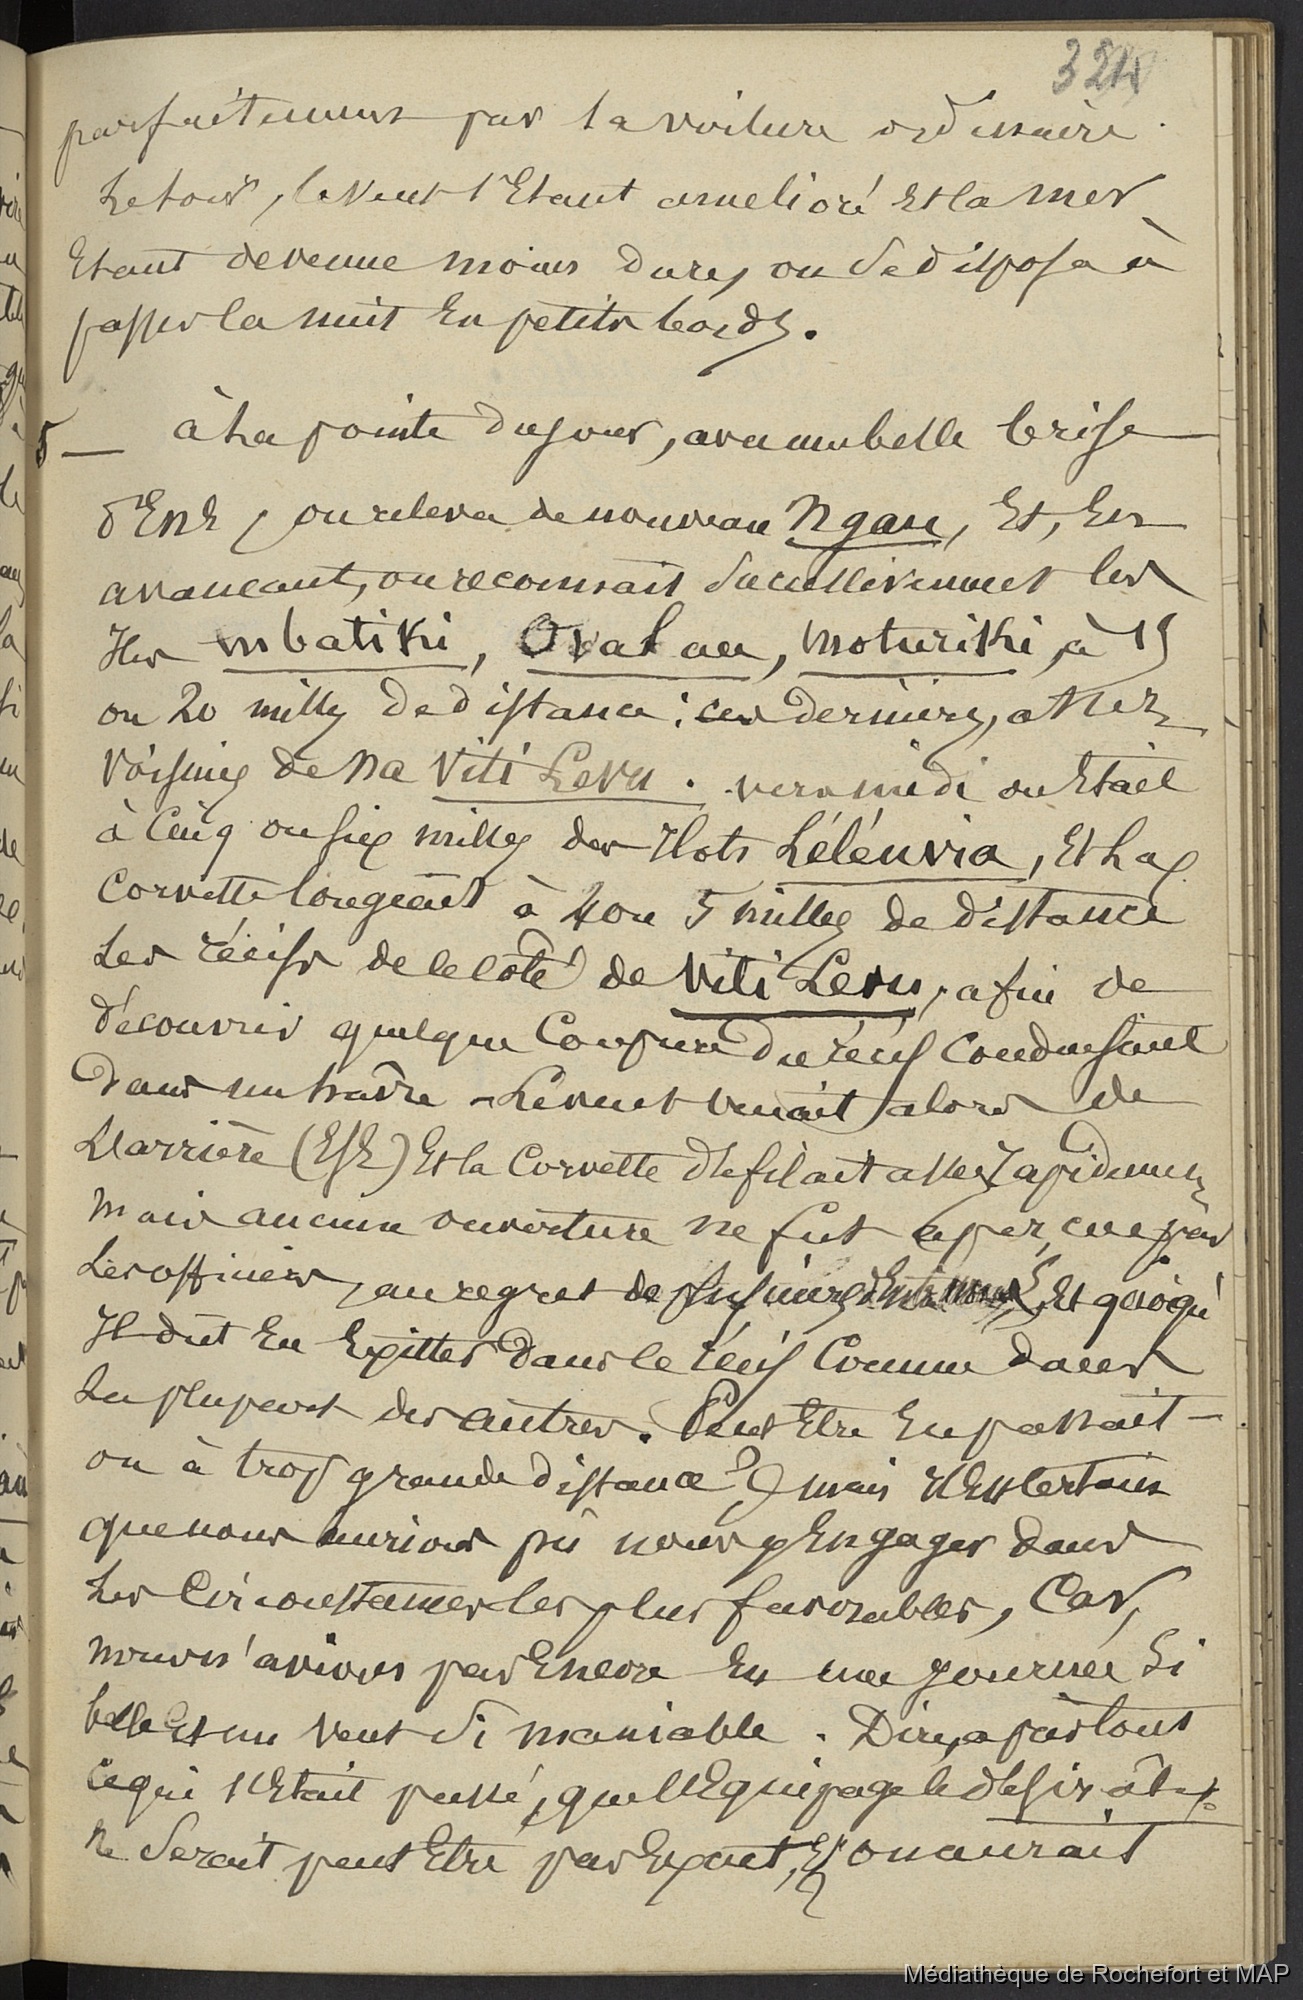 321
parfaitement par la voilure ordinaire.
Le soir, le vent s'Etant amelioré Et la mer
Etant devenue moins dure, on se disposa à
passer la nuit En petits bords.
5 — à La pointe du jour, avec une belle brise
d'ENE, on releva de nouveau Ngau, Et, En
avancant, on reconnait successivement les
Iles mbatiki, Ovalau, moturiki, à 15
ou 20 milles De distance; ces dernières, assez
voisines de Na Viti Levu. vers midi on Etait
à Cinq ou six milles des Ilots Léléuvia, Et La
Corvette longeait à 4 ou 5 milles de distance
Les récifs de le côté de Viti Levu, afin de
découvrir quelque Coupure du récif Conduisant
Dans un havre - Le vent venait alors de
L'arrière (ESE) Et la Corvette défilait assez rapidement
mais aucune ouverture ne fut aperçue par
Les officiers, au regret de plusieurs d'Entre nous, Et quoiqu'
Il dut En Exister Dans le récif Comme dans
La plupart des autres. Peut Etre En passait-
on à trop grande distance? mais il Est certain
que nous aurions pû nous y Engager dans
Les Circonstances les plus favorables, Car,
nous n'avions pas Encore Eu une journée Si
belle Et un vent Si maniable. Dire, après tout
ce qui s'Etait passé, que l'Equipage le désirât,
ne Serait peut Etre pas Exact, Et on aurait
Médiathèque de Rochefort et MAP